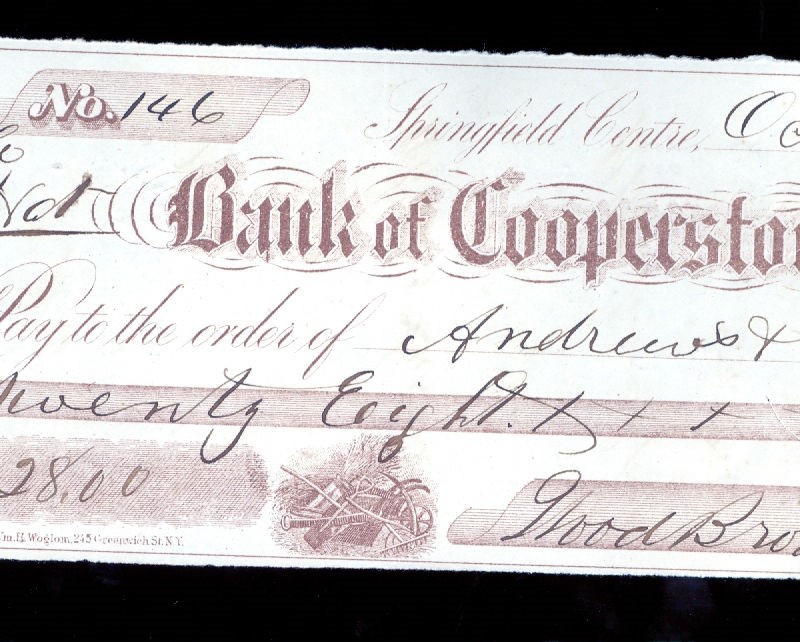 No. 146
Springfield Centre, Oc
Bank of Coopersto
Pay to the order of Andrews &
Twenty Eight. x x x
28.00
Wood Bro
Wm. H. Woglom, 245 Greenwich St. N.Y.